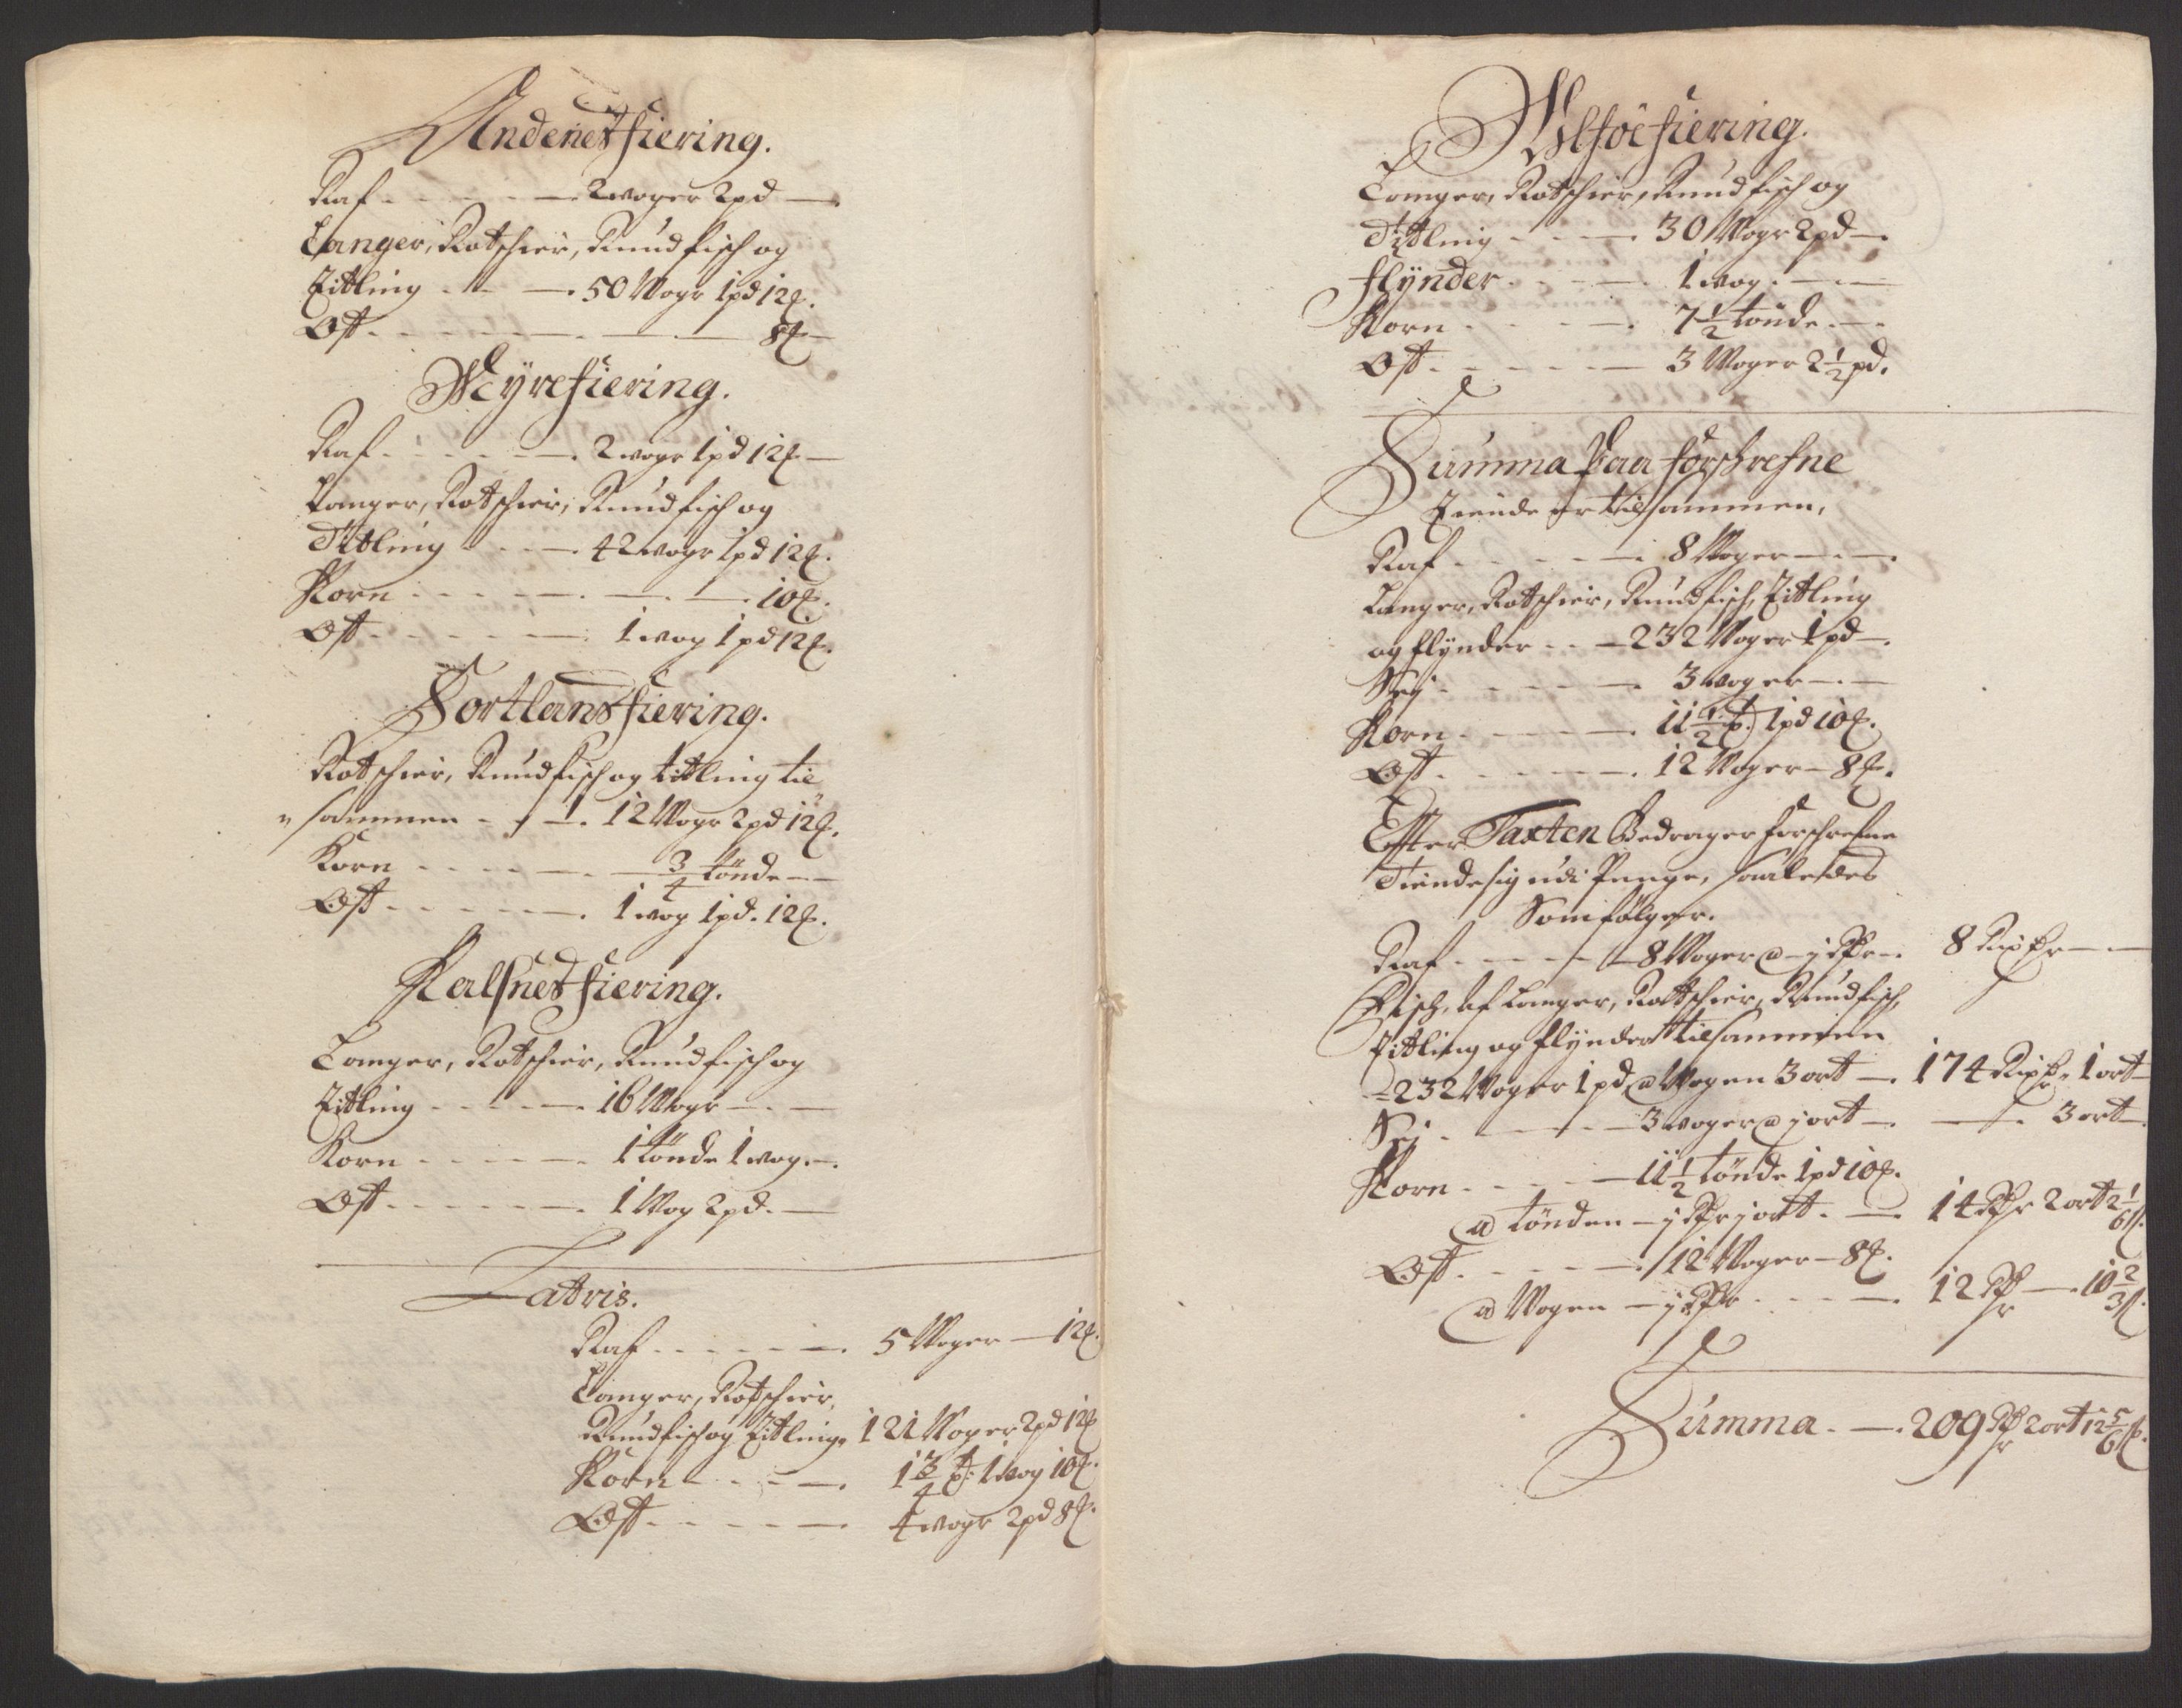 Andenes fiering.
Raf - - - - 2 woger 2 pd -
Langer, Rotschier, Rundfisch og
Titling - - - 50 Wogr 1 pd 12 ℔.
Ost - - - - - 8 ℔ -
Myre fiering.
Raf - - - - 2 wogr 1 pd 12 ℔ -
Langer, Rotschier, Rundfisch og
Titling - - - 42 wogr 1 pd 12 ℔.
Korn - - - - - 10 ℔.
Ost - - - - 1 wog 1 pd 12 ℔.
Sortlans fiering.
Rotschier, Rundfisch og titling til
" sammen - - - 12 Wogr 2 pd 12 ℔.
Korn - - - - 3/4 tönde -
Ost - - - - 1 wog 1 pd. 12 ℔.
Kalsnes fiering.
Langer, Rotschier, Rundfisch og
Titling - - - - 16 Wogr - -
Korn - - - - 1 tönde 1 wog. -
Ost - - - - - 1 Wog 2 pd. -
Latris.
Raf - - - - 5 Woger - 12 ℔.
Langer, Rotschier,
Rundfisch og Titling, 121 Woger 2 pd 12 ℔
Korn - - - - 1 3/4 t: 1 wog 10 ℔.
Ost - - - - 4 wogr 2 pd 8 ℔.
Ulföe fiering.
Langer, Rotschier, Rundfisch og
Titling - - - 30 Wogr 2 pd -
flÿnder - - - 1 wog. - -
Korn - - - - 7 1/2 tönde. -
Ost - - - - - 3 Woger 2 1/2 pd.
Summa Paa forschrefne
Tiende er tilsammen,
Raf - - - - 8 Woger - -
Langer, Rotschier, Rundfisch, Titling
og flÿnder - - 232 Woger 1 pd -
Sej - - - - - 3 woger - -
Korn - - - - 11 1/2 t: 1 pd 10 ℔.
Ost - - - - 12 Woger - 8 ℔.
Efter Taxten Bedrager forschrefne
Tiende sig udi Penge, saaledes
Som følger.
Raf - - - - 8 Woger a - j Rdr - 8 Rixdr - -
Fisch, af Langer, Rotschier, Rundfisch,
Titling og flÿnder tilsammen
- 232 Woger 1 pd, a Wogen 3 ort - 174 Rixdr, 1 ort -
Sej - - - - 3 woger a j ort - - - 3 ort -
Korn - - - - 11 1/2 tönde 1 pd 10 ℔.
a tönden - j Rdr j ort. - 14 Rdr 2 ort 2 1/6 ß.
Ost - - - - 12 Woger - 8 ℔.
a Wogen - j Rdr - - - 12 Rdr - 10 2/3 ß.
Summa. - 209 Rdr 2 ort 12 5/6 ß.